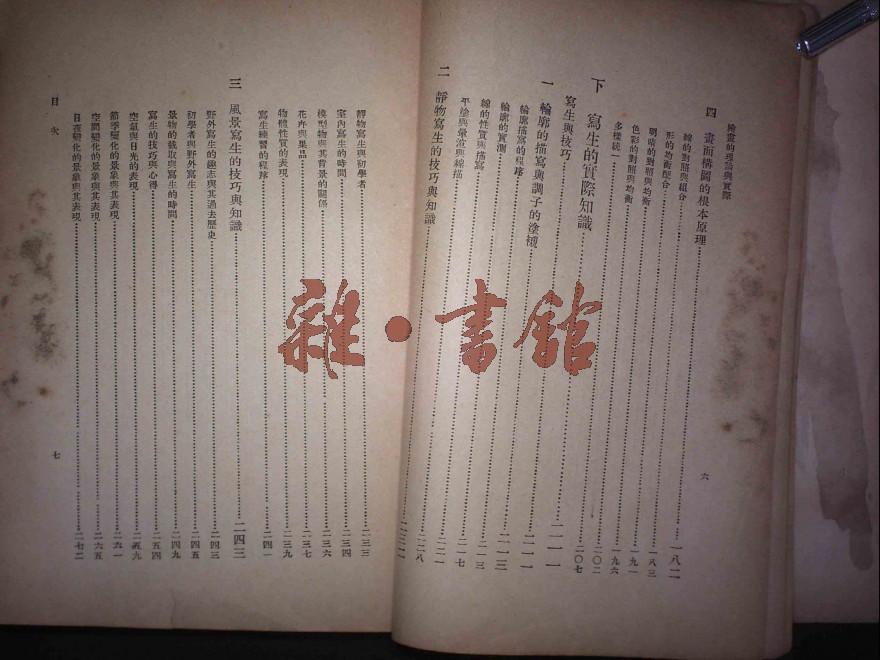 繪畫的理論與實際
四 畫面構圖的根本原理 一八二
線的對照與組合 一八三
形的均衡配合 一九一
明暗的對照與均衡 一九六
色彩的對照與均衡 二〇二
多樣統一 二〇七
下 寫生的實際知識 二一一
寫生與技巧 二一一
一 輪廓的描寫與調子的塗襯 二一三
輪廓描寫的程序 二一三
輪廓的實測 二一七
線的性質與描寫 二二一
平塗與暈渲與線描 二二八
二 靜物寫生的技巧與知識 二三二
六
靜物寫生與初學者 二三三
室內寫生的時間 二三四
模型物與其背景的關係 二三六
花卉與果品 二三七
物體性質的表現 二三九
寫生練習的程序 二四一
三 風景寫生的技巧與知識 二四三
野外寫生的志與其過去歷史 二四三
初學者與野外寫生 二四五
景物的截取與寫生的時間 二四九
寫生的技巧與心得 二五四
空氣與日光的表現 二五九
節季變化的景象與其表現 二六一
空間變化的景象與其表現 二六五
日夜變化的景象與其表現 二七二
目次
七
雜·書館